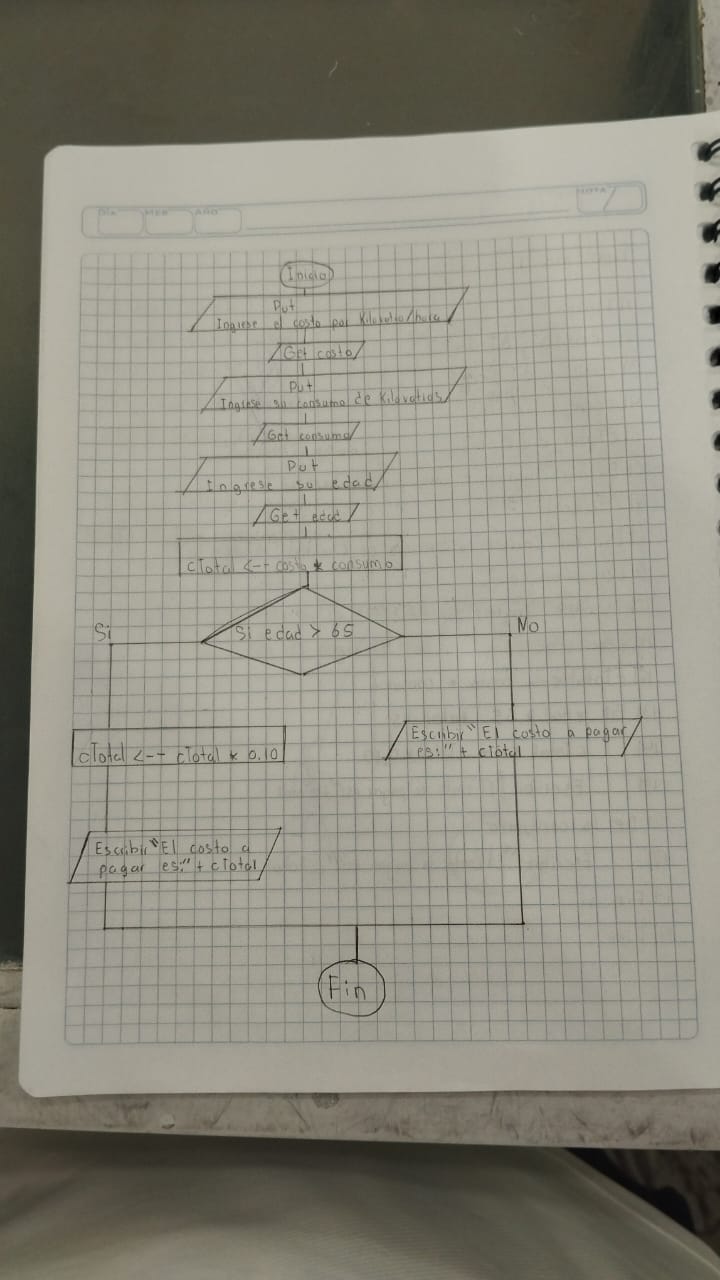 DÍA MES AÑO
NOTA
Inicio
Put
Ingrese el costo por Kilovatio/hora
Get costo
Put
Ingrese su consumo de Kilovatios
Get consumo
Put
Ingrese su edad
Get edad
cTotal <-- costo * consumo
Si edad > 65
Si
No
cTotal <-- cTotal * 0.10
Escribir "El costo a pagar
es:" + cTotal
Escribir "El costo a
pagar es:" + cTotal
Fin